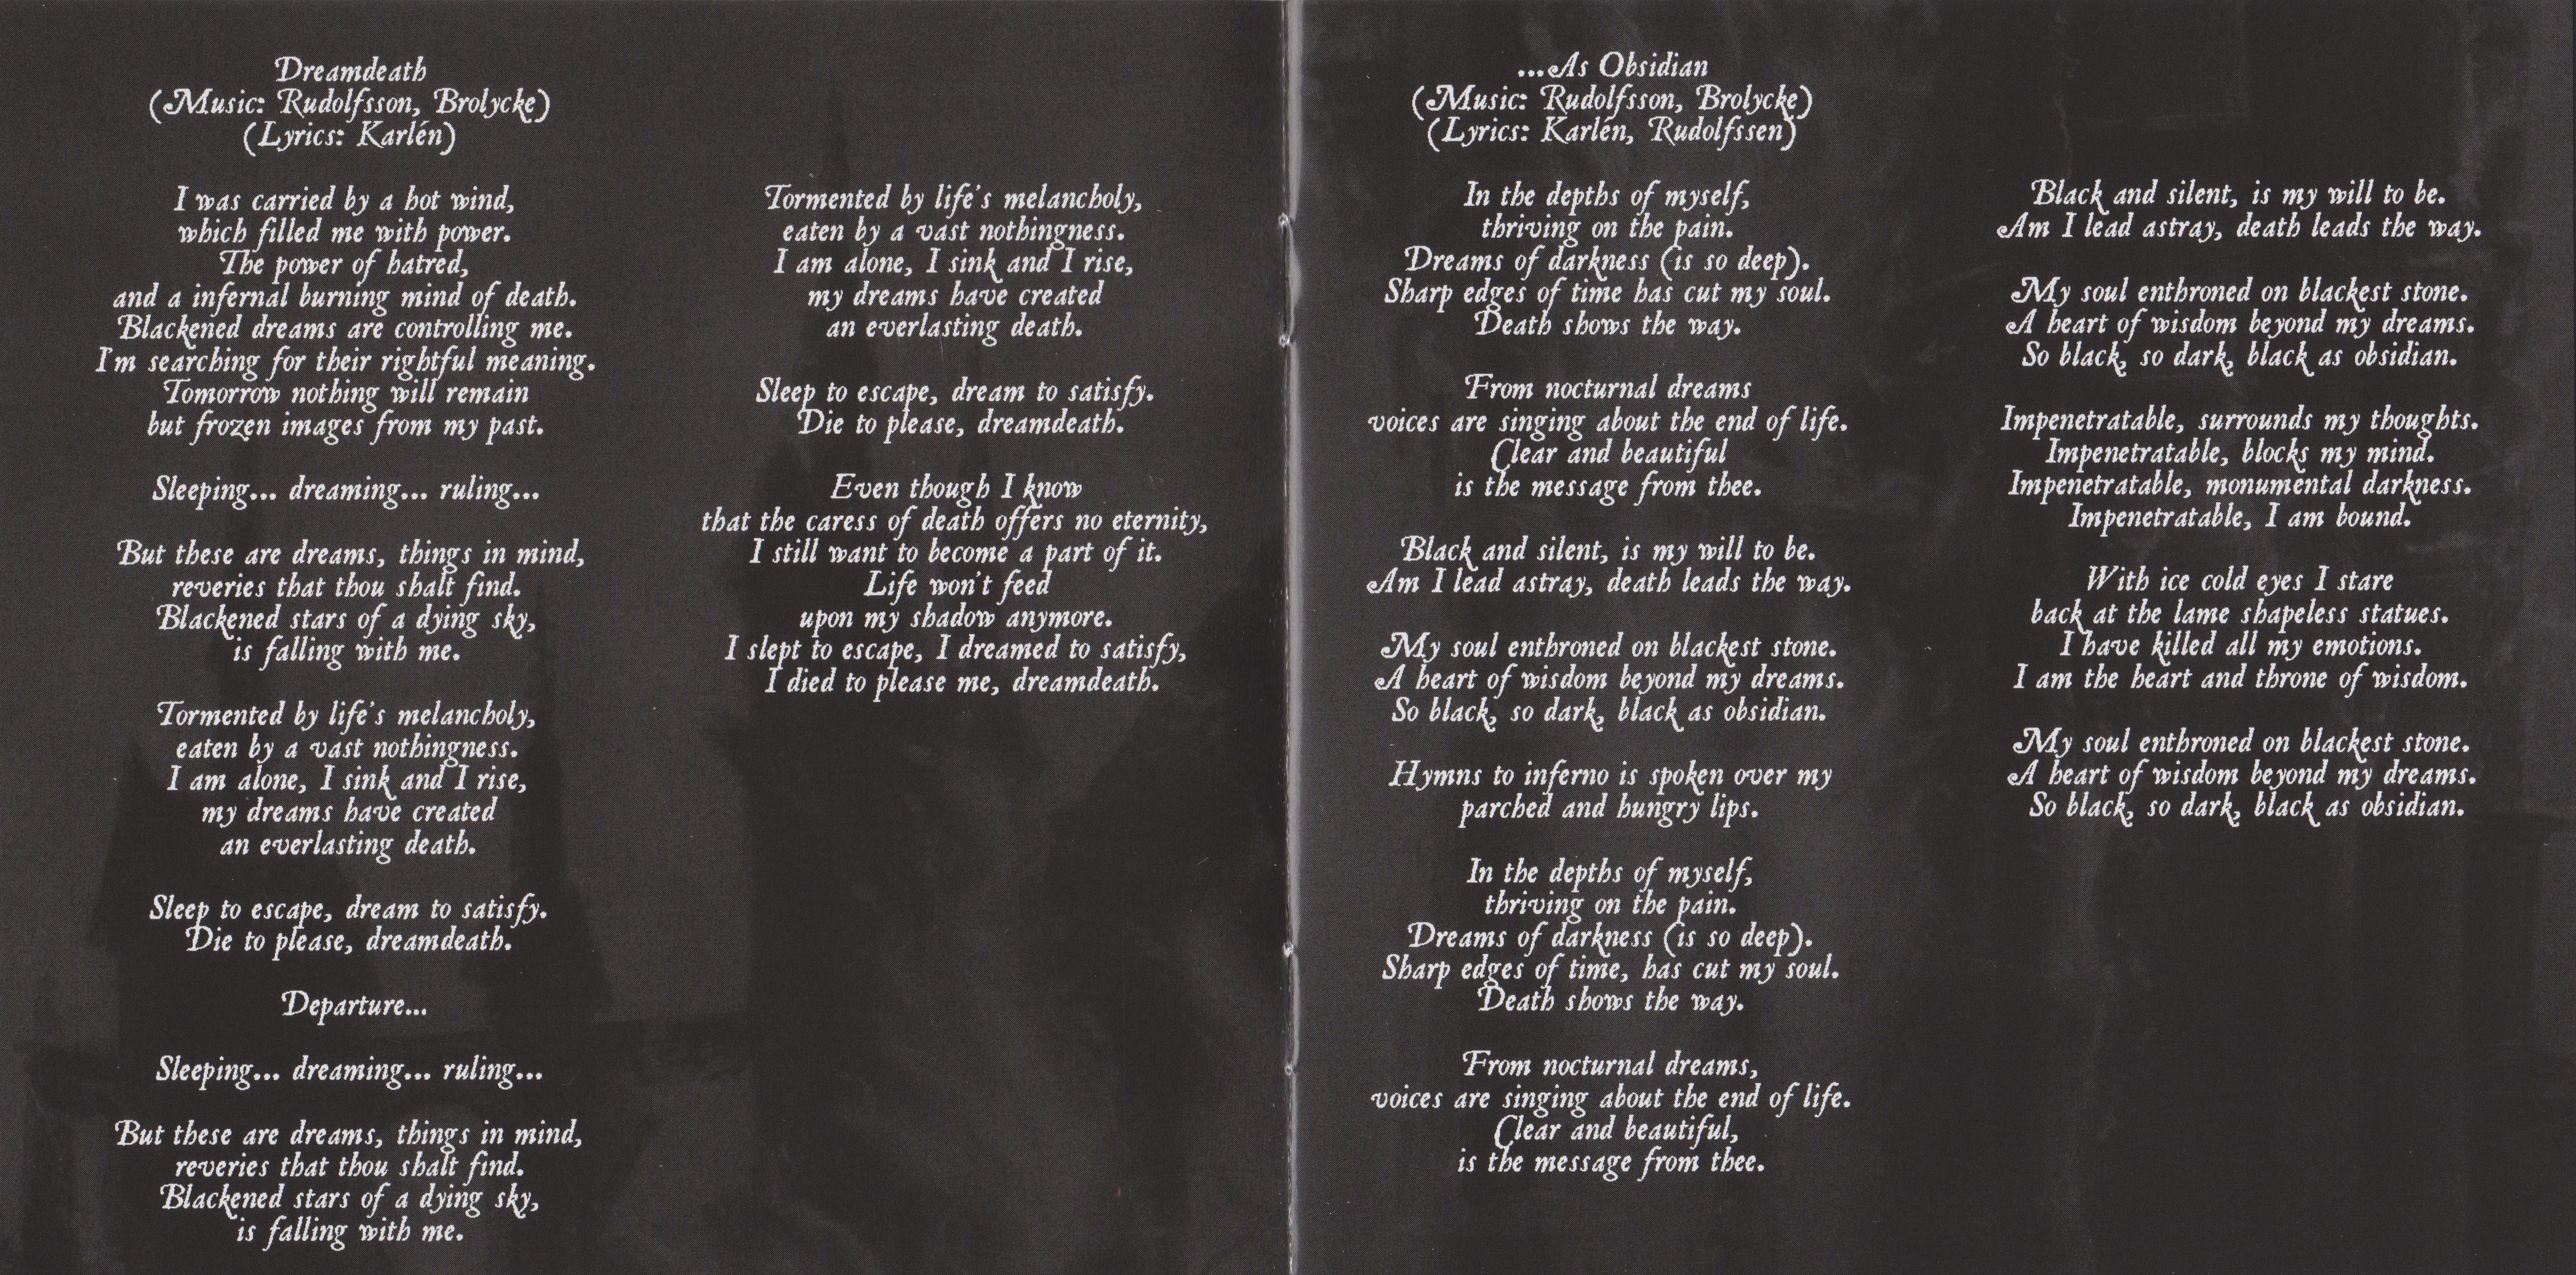 Dreamdeath
(Music: Rudolfsson, Brolycke)
(Lyrics: Karlén)
I was carried by a hot wind,
which filled me with power.
The power of hatred,
and a infernal burning mind of death.
Blackened dreams are controlling me.
I'm searching for their rightful meaning.
Tomorrow nothing will remain
but frozen images from my past.
Sleeping... dreaming... ruling...
But these are dreams, things in mind,
reveries that thou shalt find.
Blackened stars of a dying sky,
is falling with me.
Tormented by life's melancholy,
eaten by a vast nothingness.
I am alone, I sink and I rise,
my dreams have created
an everlasting death.
Sleep to escape, dream to satisfy.
Die to please, dreamdeath.
Departure...
Sleeping... dreaming... ruling...
But these are dreams, things in mind,
reveries that thou shalt find.
Blackened stars of a dying sky,
is falling with me.
Tormented by life's melancholy,
eaten by a vast nothingness.
I am alone, I sink and I rise,
my dreams have created
an everlasting death.
Sleep to escape, dream to satisfy.
Die to please, dreamdeath.
Even though I know
that the caress of death offers no eternity,
I still want to become a part of it.
Life won't feed
upon my shadow anymore.
I slept to escape, I dreamed to satisfy,
I died to please me, dreamdeath.
...As Obsidian
(Music: Rudolfsson, Brolycke)
(Lyrics: Karlén, Rudolfssen)
In the depths of myself,
thriving on the pain.
Dreams of darkness (is so deep).
Sharp edges of time has cut my soul.
Death shows the way.
From nocturnal dreams
voices are singing about the end of life.
Clear and beautiful
is the message from thee.
Black and silent, is my will to be.
Am I lead astray, death leads the way.
My soul enthroned on blackest stone.
A heart of wisdom beyond my dreams.
So black, so dark, black as obsidian.
Hymns to inferno is spoken over my
parched and hungry lips.
In the depths of myself,
thriving on the pain.
Dreams of darkness (is so deep).
Sharp edges of time, has cut my soul.
Death shows the way.
From nocturnal dreams,
voices are singing about the end of life.
Clear and beautiful,
is the message from thee.
Black and silent, is my will to be.
Am I lead astray, death leads the way.
My soul enthroned on blackest stone.
A heart of wisdom beyond my dreams.
So black, so dark, black as obsidian.
Impenetratable, surrounds my thoughts.
Impenetratable, blocks my mind.
Impenetratable, monumental darkness.
Impenetratable, I am bound.
With ice cold eyes I stare
back at the lame shapeless statues.
I have killed all my emotions.
I am the heart and throne of wisdom.
My soul enthroned on blackest stone.
A heart of wisdom beyond my dreams.
So black, so dark, black as obsidian.